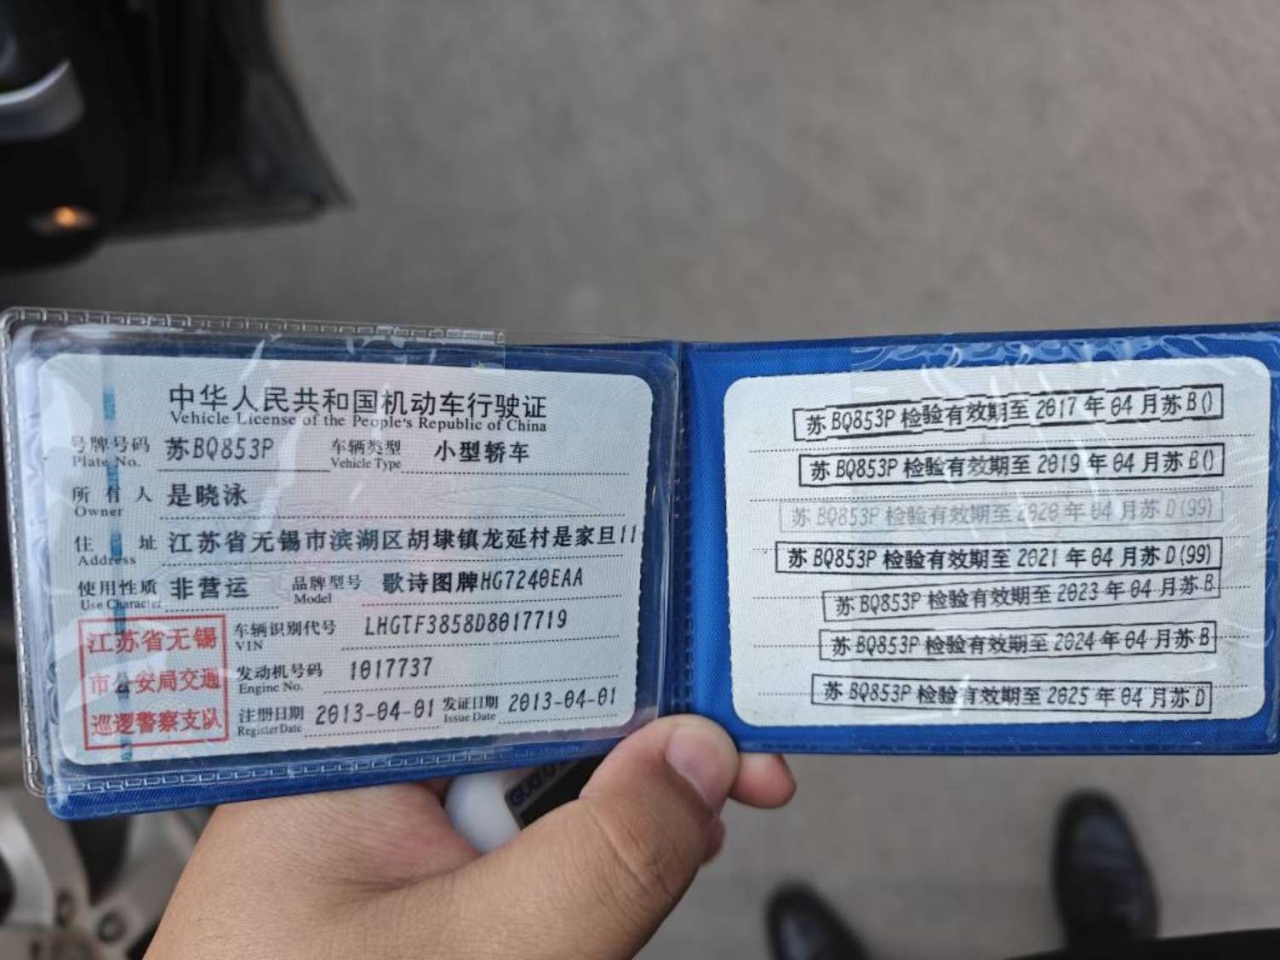 中华人民共和国机动车行驶证
Vehicle License of the People's Republic of China
号牌号码 苏BQ853P 车辆类型 小型轿车
Plate No. Vehicle Type
所有人 是晓泳
Owner
住址 江苏省无锡市滨湖区胡埭镇龙延村是家旦11
Address
使用性质 非营运 品牌型号 歌诗图牌HG7240EAA
Use Character Model
江苏省无锡
市公安局交通
巡逻警察支队
车辆识别代号 LHGTF3858D8017719
VIN
发动机号码 1017737
Engine No.
注册日期 2013-04-01 发证日期 2013-04-01
Register Date Issue Date
苏BQ853P检验有效期至2017年04月苏B()
苏BQ853P检验有效期至2019年04月苏B()
苏BQ853P检验有效期至2020年04月苏D(99)
苏BQ853P检验有效期至2021年04月苏D(99)
苏BQ853P检验有效期至2023年04月苏B
苏BQ853P检验有效期至2024年04月苏B
苏BQ853P检验有效期至2025年04月苏D